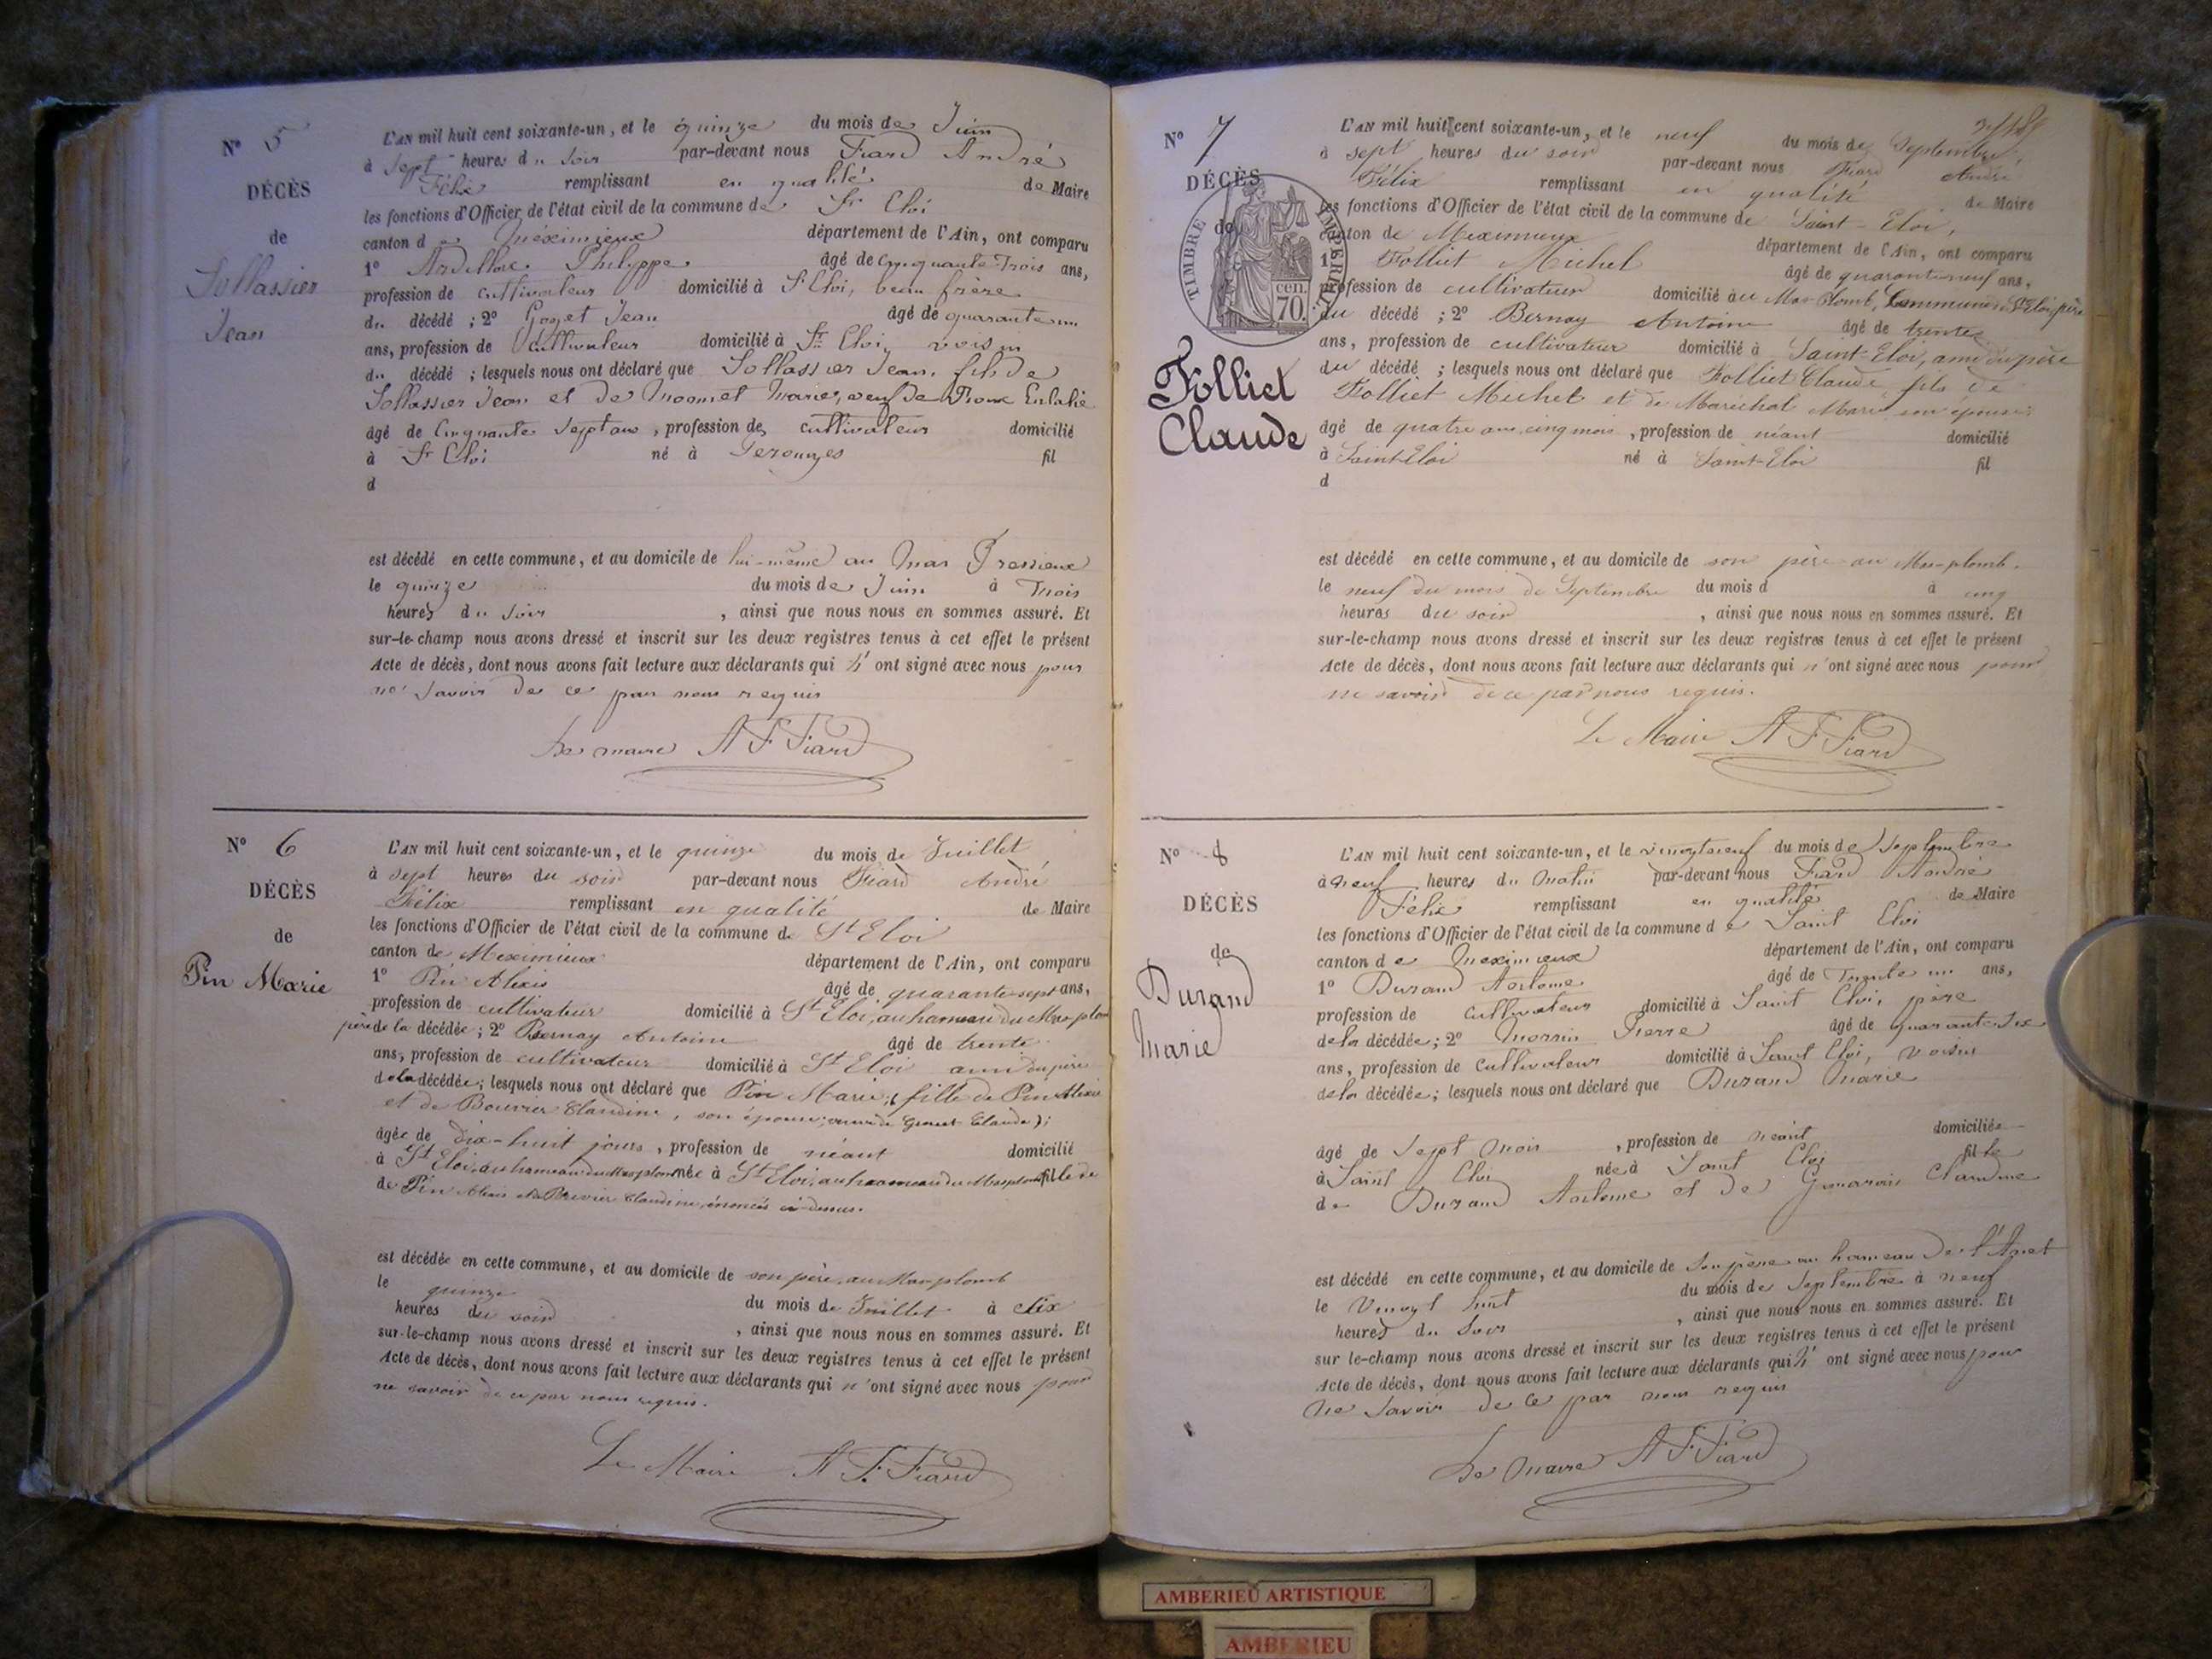 N° 5
DÉCÈS
de
Sollassier
Jean
L'AN mil huit cent soixante-un, et le quinze du mois de Juin
à Sept heures du Soir par-devant nous Fiard André
Félix remplissant en qualité de Maire
les fonctions d'Officier de l'état civil de la commune de St Eloi
canton de Méximieux département de l'Ain, ont comparu
1° Philippe âgé de Cinquante Trois ans,
profession de cultivateur domicilié à St Eloi, beau frère
du décédé ; 2° Goyet Jean âgé de quarante un
ans, profession de Cultivateur domicilié à St Eloi, voisin
du décédé ; lesquels nous ont déclaré que Sollassier Jean, fils de
Sollassier Jean et de Marie, veuf de Eulalie
âgé de Cinquante Sept ans, profession de cultivateur domicilié
à St Eloi né à Perouges fil
d
est décédé en cette commune, et au domicile de lui-même au Mas Pressieux
le quinze du mois de Juin à Trois
heures du Soir , ainsi que nous nous en sommes assuré. Et
sur-le-champ nous avons dressé et inscrit sur les deux registres tenus à cet effet le présent
Acte de décès, dont nous avons fait lecture aux déclarants qui n'ont signé avec nous pour
ne savoir de ce par nous requis
Le maire A F Fiard
N° 6
DÉCÈS
de
Pin Marie
L'AN mil huit cent soixante-un, et le quinze du mois de Juillet
à sept heures du soir par-devant nous Fiard André
Félix remplissant en qualité de Maire
les fonctions d'Officier de l'état civil de la commune de St Eloi
canton de Meximieux département de l'Ain, ont comparu
1° Pin Alexis âgé de quarante-sept ans,
profession de cultivateur domicilié à St Eloi, au hameau du Mas-plomb
père de la décédée ; 2° Bernay Antoine âgé de trente
ans, profession de cultivateur domicilié à St Eloi ami du père
de la décédée ; lesquels nous ont déclaré que Pin Marie, (fille de Pin Alexis
et de Bouvier Claudine, son épouse, veuve de Claude);
âgée de dix-huit jours, profession de néant domicilié
à St Eloi, au hameau du Mas plomb née à St Eloi, au hameau du Mas plomb fille de
de Pin Alexis et de Bouvier Claudine, énoncés ci-dessus.
est décédée en cette commune, et au domicile de son père, au Mas plomb
le quinze du mois de Juillet à six
heures du soir , ainsi que nous nous en sommes assuré. Et
sur-le-champ nous avons dressé et inscrit sur les deux registres tenus à cet effet le présent
Acte de décès, dont nous avons fait lecture aux déclarants qui n'ont signé avec nous pour
ne savoir de ce par nous requis.
Le Maire A F Fiard
N° 7
DÉCÈS
de
TIMBRE IMPERIAL
cen.
70.
Folliet
Claude
L'AN mil huit cent soixante-un, et le neuf du mois de Septembre,
à sept heures du soir par-devant nous Fiard André
Félix remplissant en qualité de Maire
les fonctions d'Officier de l'état civil de la commune de Saint-Eloi,
canton de Meximieux département de l'Ain, ont comparu
1° Folliet Michel âgé de quarante-neuf ans,
profession de cultivateur domicilié au Mas-Plomb, Commune de St Eloi, père
du décédé ; 2° Bernay Antoine âgé de trente
ans, profession de cultivateur domicilié à Saint-Eloi, ami du père
du décédé ; lesquels nous ont déclaré que Folliet Claude fils de
Folliet Michel et de Maréchal Marie son épouse
âgé de quatre ans, cinq mois, profession de néant domicilié
à Saint-Eloi né à Saint-Eloi fil
d
est décédé en cette commune, et au domicile de son père au Mas-plomb.
le neuf du mois de Septembre du mois d à cinq
heures du soir , ainsi que nous nous en sommes assuré. Et
sur-le-champ nous avons dressé et inscrit sur les deux registres tenus à cet effet le présent
Acte de décès, dont nous avons fait lecture aux déclarants qui n'ont signé avec nous pour
ne savoir de ce par nous requis.
Le Maire A F Fiard
N° 8
DÉCÈS
de
Durand
Marie
L'AN mil huit cent soixante-un, et le vingt neuf du mois de Septembre
à neuf heures du Matin par-devant nous Fiard André
Félix remplissant en qualité de Maire
les fonctions d'Officier de l'état civil de la commune de Saint Eloi
canton de Meximieux département de l'Ain, ont comparu
1° Durand âgé de Trente un ans,
profession de Cultivateur domicilié à Saint Eloi, père
de la décédée ; 2° Morrin Pierre âgé de quarante Six
ans, profession de Cultivateur domicilié à Saint Eloi, voisin
de la décédée ; lesquels nous ont déclaré que Durand Marie
âgé de Sept Mois, profession de néant domiciliée
à Saint Eloi née à Saint Eloi fille
de Durand et de Claudine
est décédé en cette commune, et au domicile de Son père au hameau de
le Vingt huit du mois de Septembre à neuf
heures du Soir , ainsi que nous nous en sommes assuré. Et
sur le-champ nous avons dressé et inscrit sur les deux registres tenus à cet effet le présent
Acte de décès, dont nous avons fait lecture aux déclarants qui n'ont signé avec nous pour
ne savoir de ce par nous requis
Le Maire A F Fiard
AMBERIEU ARTISTIQUE
AMBERIEU